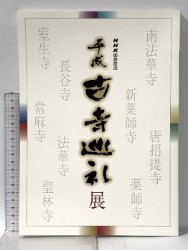 NHK
平成
古寺巡礼
展
南法華寺
新薬師寺
唐招提寺
薬師寺
室生寺
長谷寺
當麻寺
法華寺
聖林寺